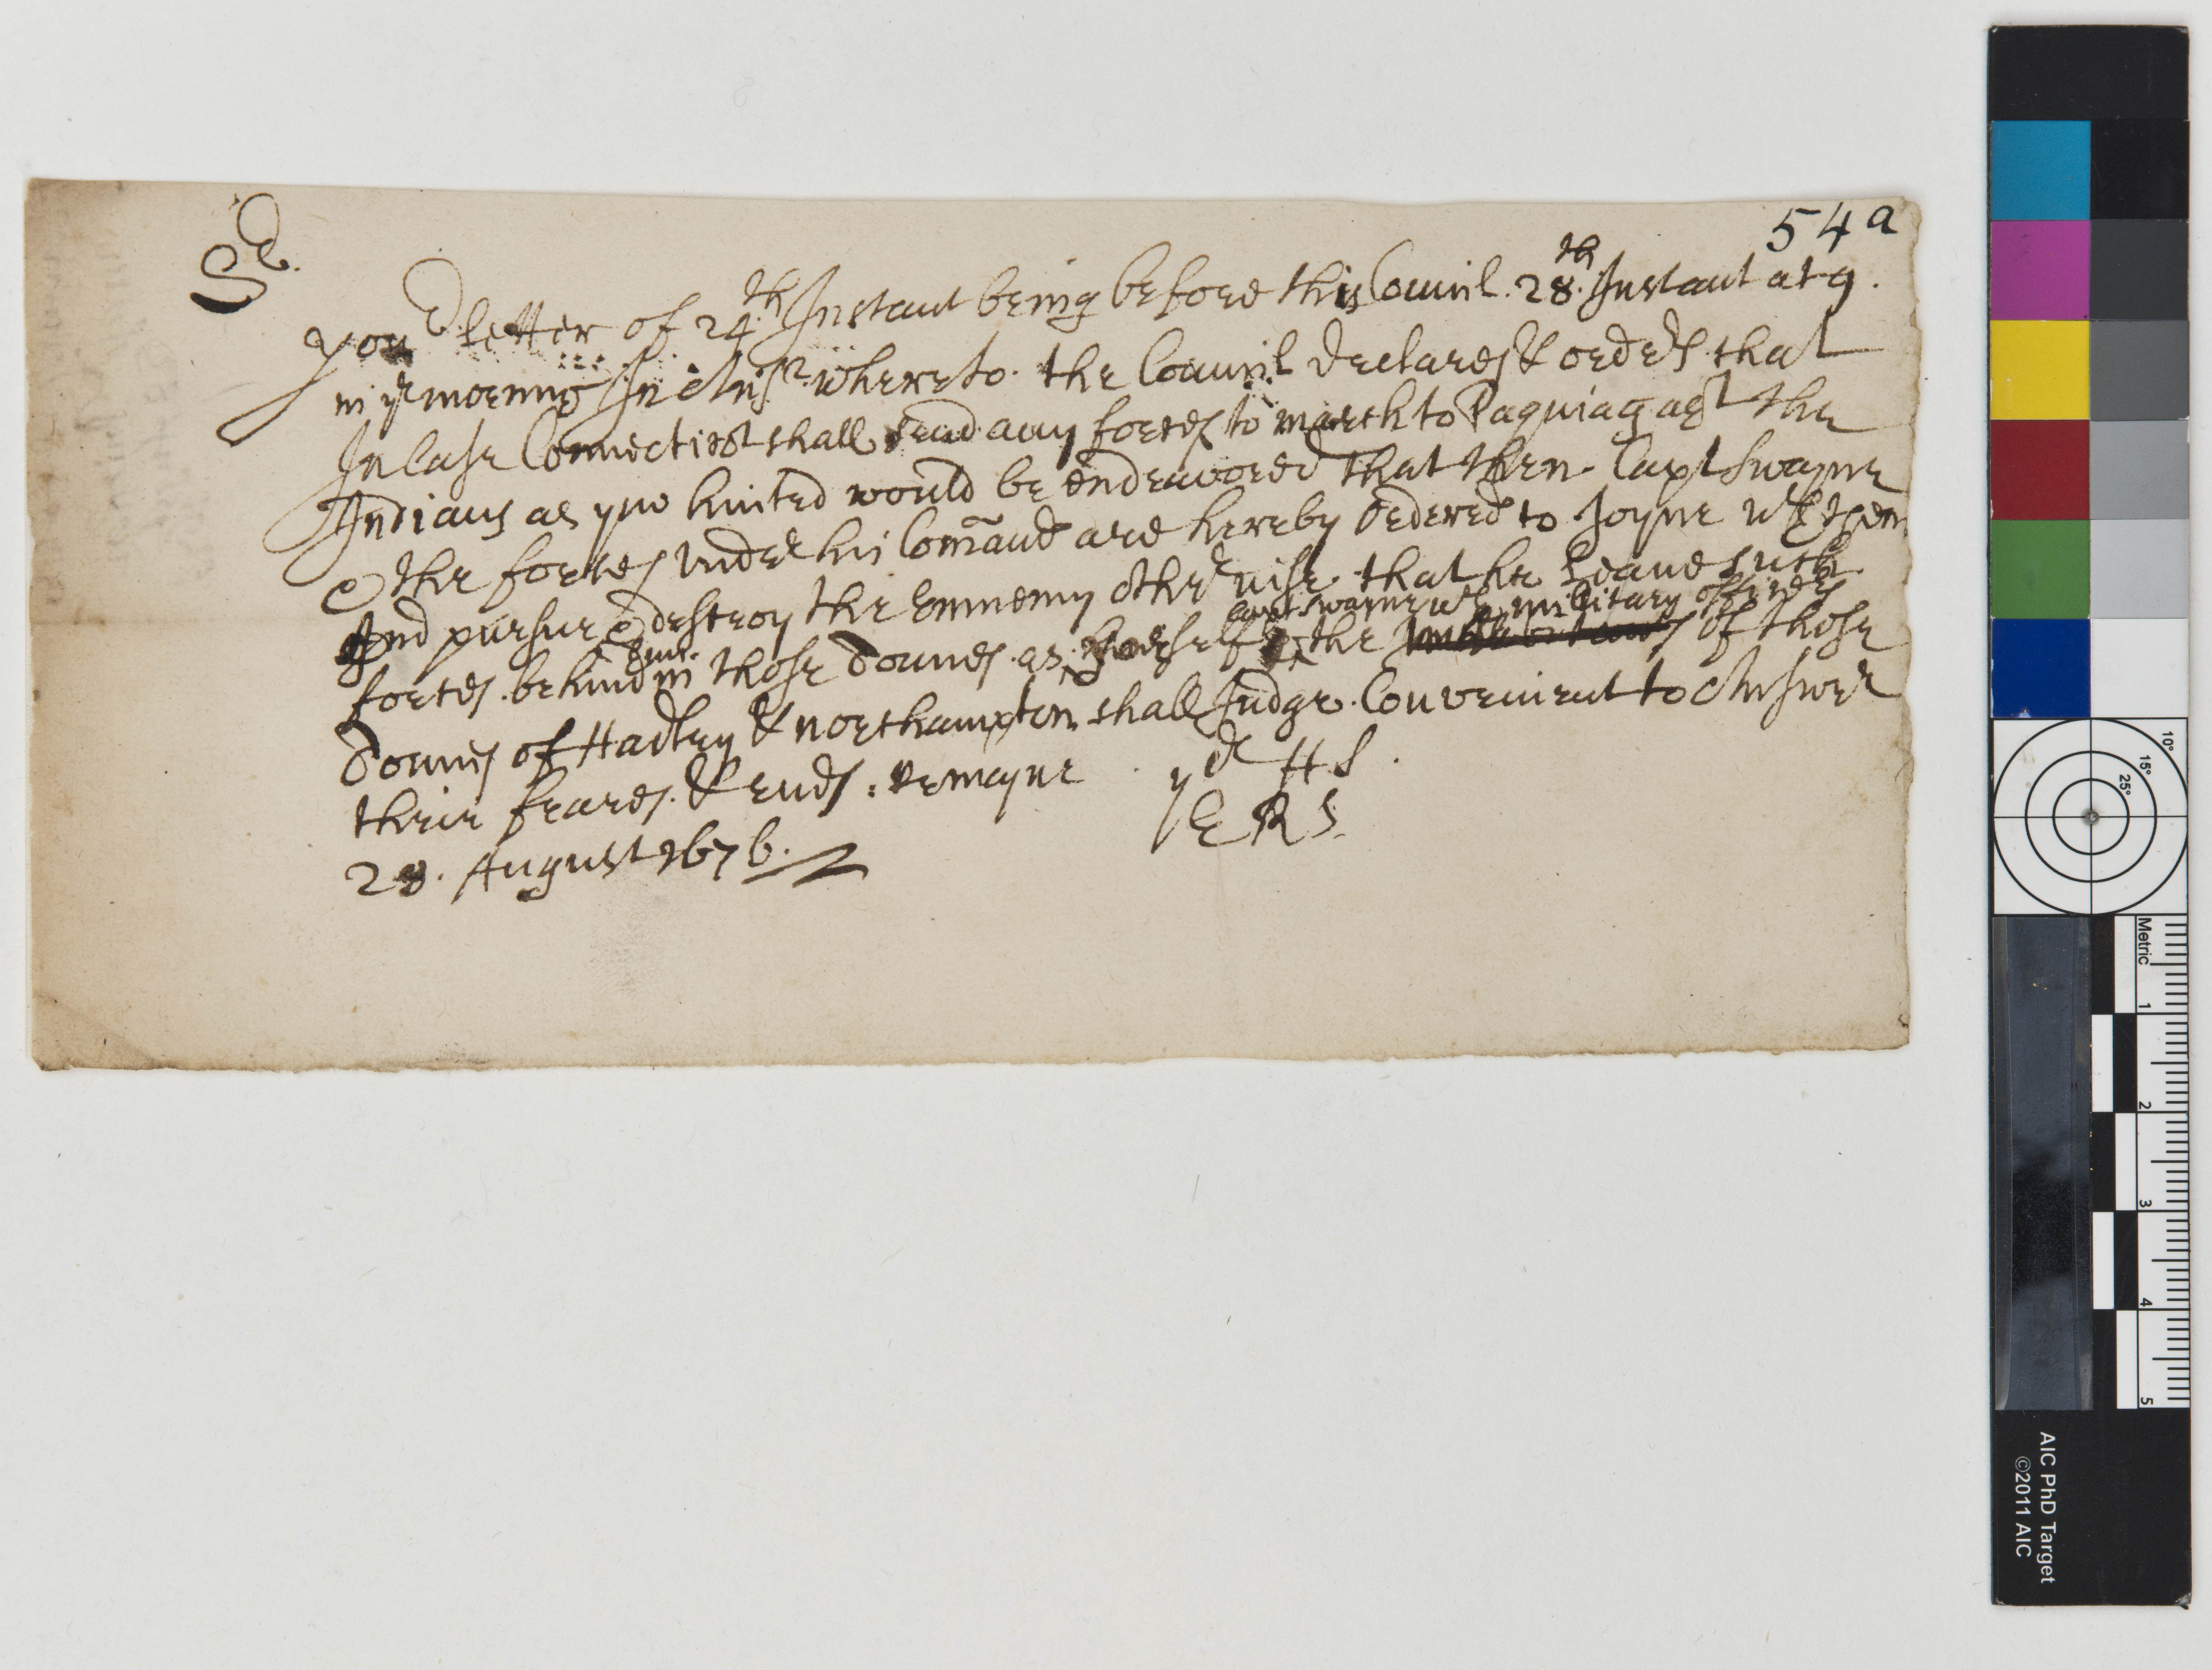 54a
Sr.
Your letter of 24th Instant being before this Council. 28th. Instant at 9.
in ye morning In Ansr. whereto. the Council declares & orders that
In Case Connecticot shall send any forces to march to Paquiag agst the
Indians as you hinted would be endeavored that then Capt Swayne
& the forces under his Comand are hereby ordered to Joyne wth them
And pursue & destroy the Ennemy otherwise that he Leave such
Capt Swayne wth military officers
forces behind in those Tounes as the of those
Tounes of Hadley & northampton shall Judge Convenient to Answer
their feares & ends: remayne yr H S.
28. August 1676. E R S.
AIC PhD Target
©2011 AIC
Metric
1
2
3
4
5
10°
15°
25°